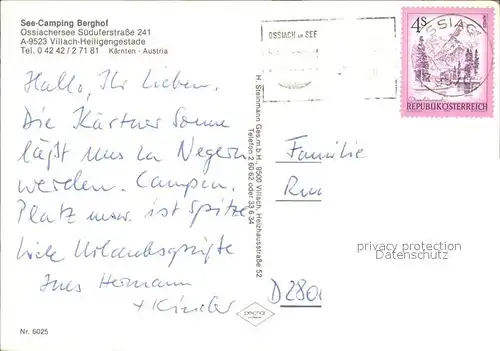 See-Camping Berghof
Ossiachersee Süduferstraße 241
A-9523 Villach-Heiligengestade
Tel. 0 42 42 / 2 71 81 Kärnten - Austria
OSSIACH AM SEE
4S
OSSIACH
REPUBLIK ÖSTERREICH
Hallo, Ihr Lieben.
Die Kärtner Sonne
läßt uns zu Negern
werden. Campen,
Platz usw. ist Spitze
Liebe Urlaubsgrüße
Hermann
+ Kinder
H. Steinmann Ges.m.b.H., 9500 Villach, Heizhausstraße 52
Telefon 2 60 62 oder 33 6 34
Familie
D280
privacy protection
watermark
Nr. 6025